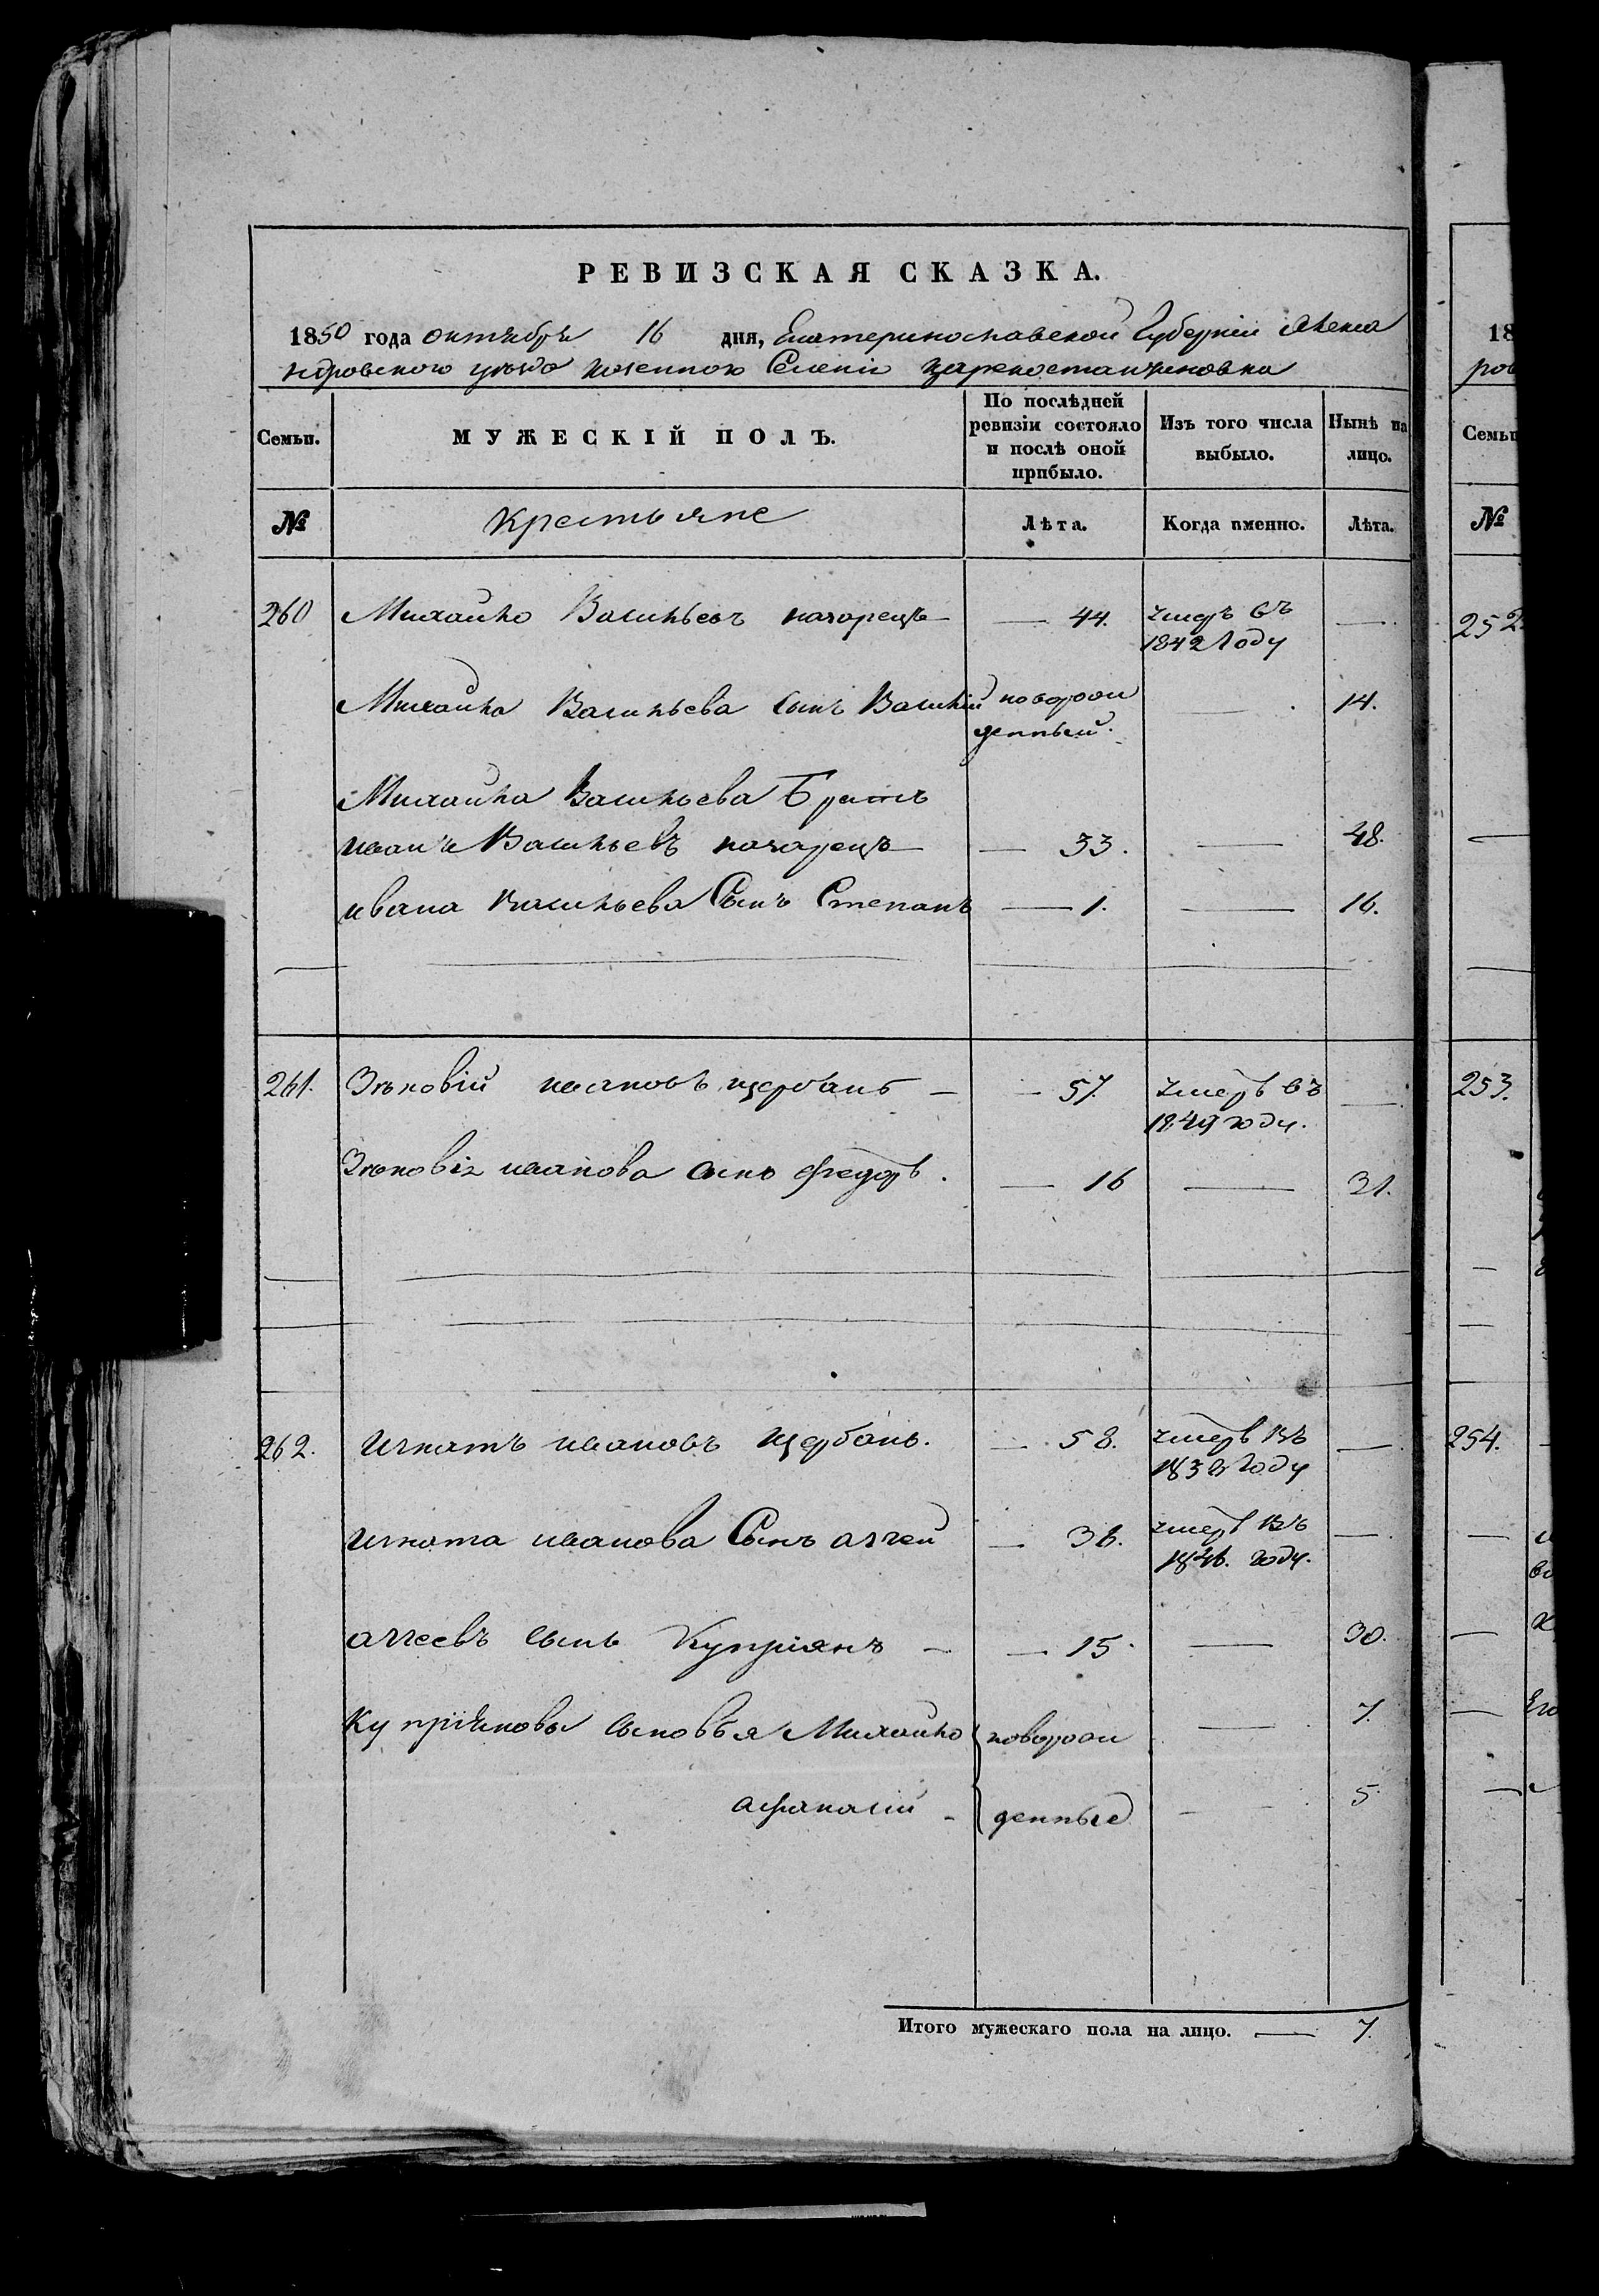 РЕВИЗСКАЯ СКАЗКА.
1850 года октября 16 дня, Екатеринославской Губернии Алекса
ндровского уезда казенного Селения Цареконстантиновки
Семьи. МУЖЕСКІЙ ПОЛЪ. По послѣдней ревизіи состояло и послѣ оной прибыло. Изъ того числа выбыло. Нынѣ на лицо.
№ Крестьяне Лѣта. Когда именно. Лѣта.
260 Михайло Васильевъ — 44. умеръ въ —
1842 Году
Михайла Васильева сынъ Василій новорож — 14.
денный.
Михайла Васильева Братъ
иванъ Васильевъ — 33. — 48.
ивана Васильева Сынъ Степанъ — 1. — 16.
261. Зѣновій ивановъ щербань — — 57. умеръ въ —
1849 году.
Зѣновія иванова сынъ федоръ. — 16 — 31.
262. игнатъ ивановъ щербань. — 58. умеръ въ —
году
игната иванова Сынъ аггей — 36. умеръ въ —
1846. году.
аггеевъ сынъ Купріянъ — — 15. — 30.
Купріяновы сыновья Михайло новорож — 7.
афанасій — денные — 5.
Итого мужескаго пола на лицо. — 7.
18
ров
Семьи
№
252
253.
254.